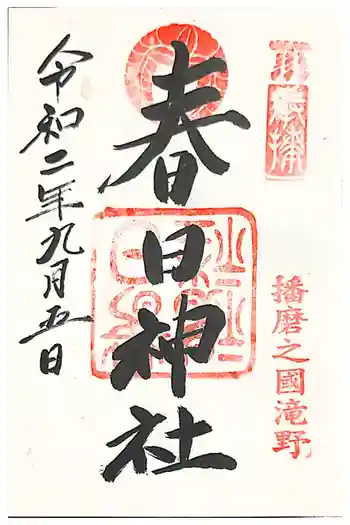 奉拝
播磨之國滝野
春日神社
令和二年九月五日